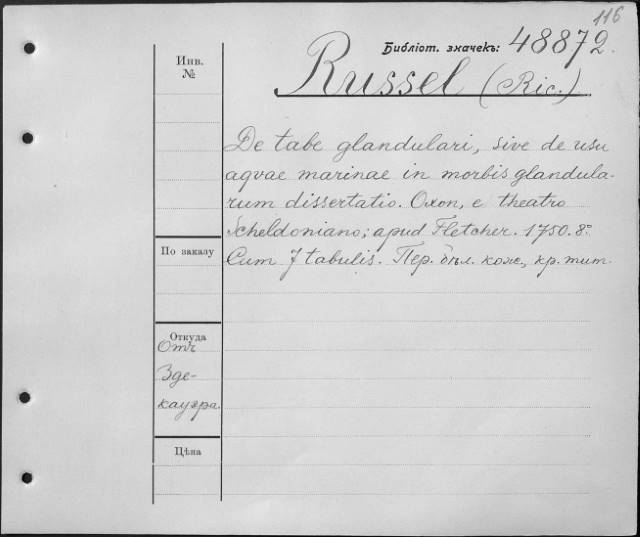 116
Библіот. значекъ: 48872.
Инв.
№
Russel (Ric.)
De tabe glandulari, sive de usu
aqvae marinae in morbis glandula-
rum dissertatio. Oxon, e theatro
Scheldoniano; apud Fletcher. 1750. 8º
Cum 7 tabulis. Пер. бѣл. кож., кр. тит.
По заказу
Откуда
Отъ
Зде-
кауэра.
Цѣна